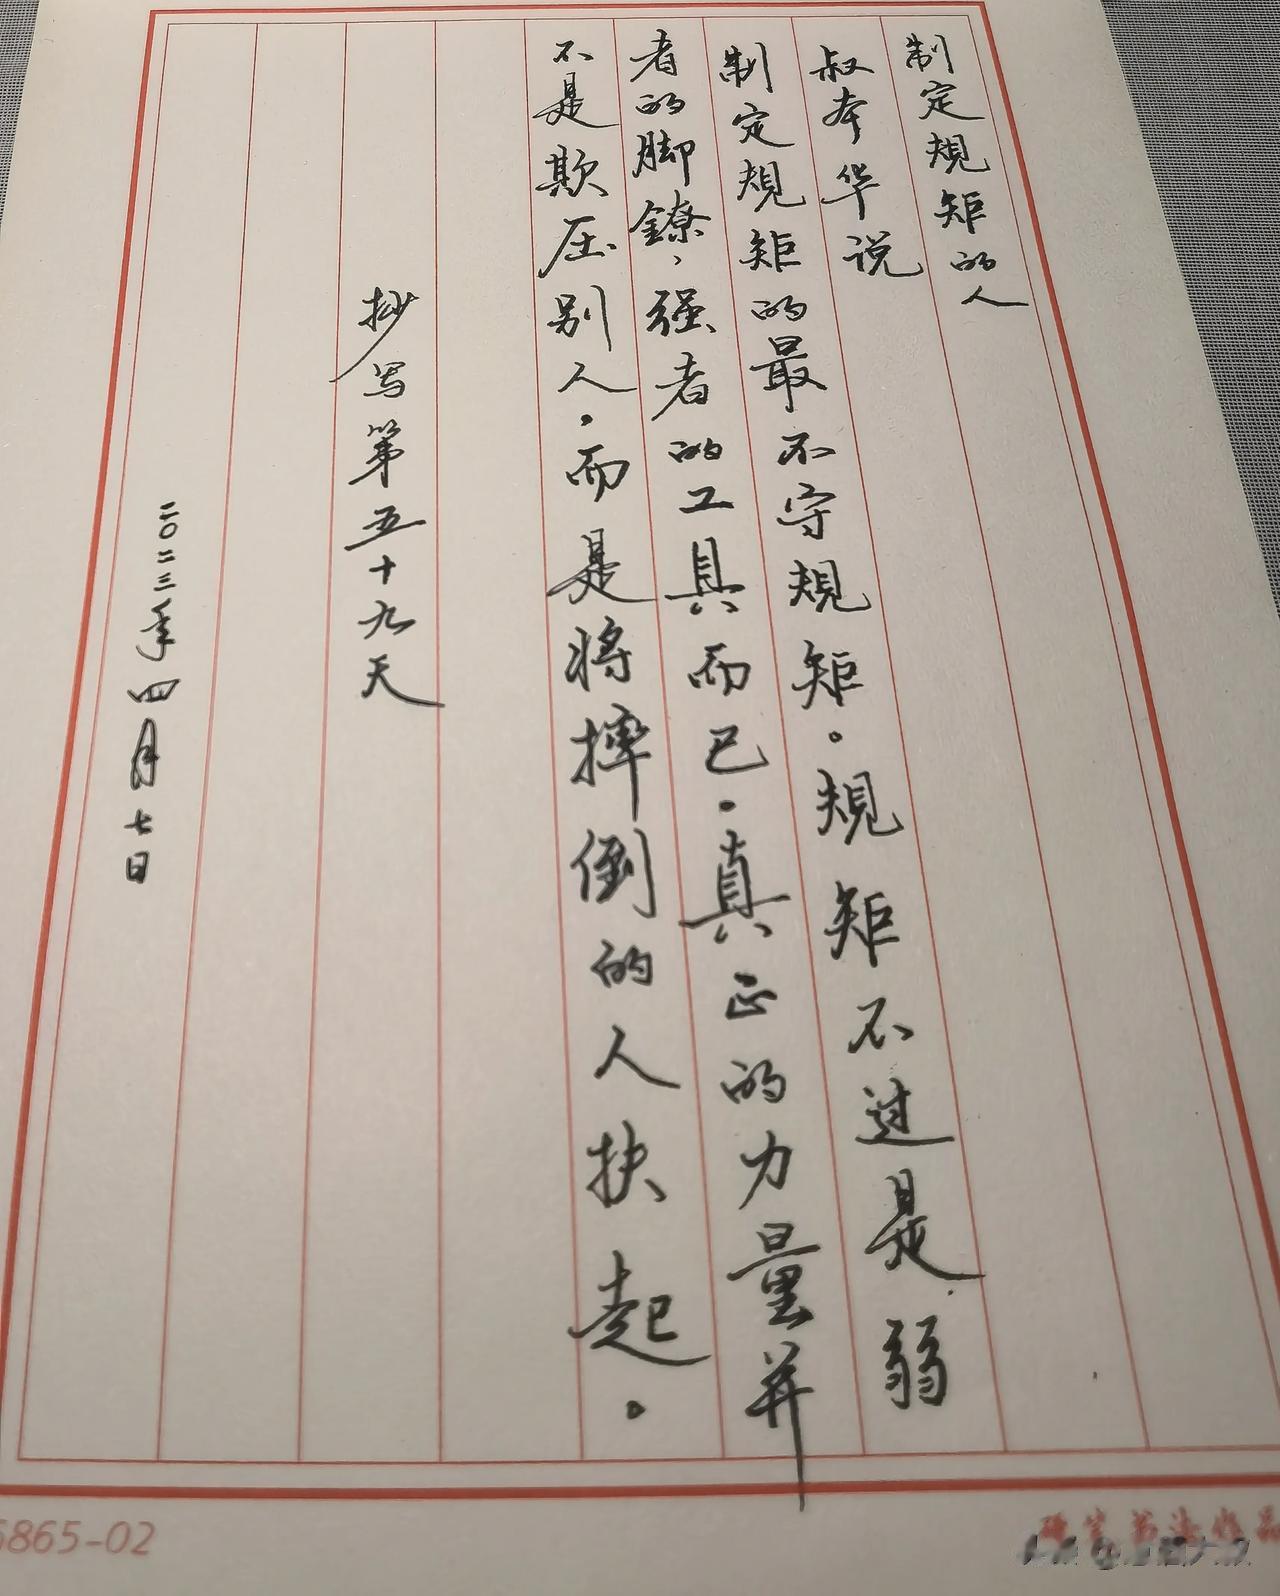 制定規矩的人
叔本华说
制定規矩的最不守規矩。規矩不过是弱
者的脚鐐，强者的工具而已。真正的力量并
不是欺压别人。而是将摔倒的人扶起。
抄写第五十九天
二〇二三年四月七日
6865-02